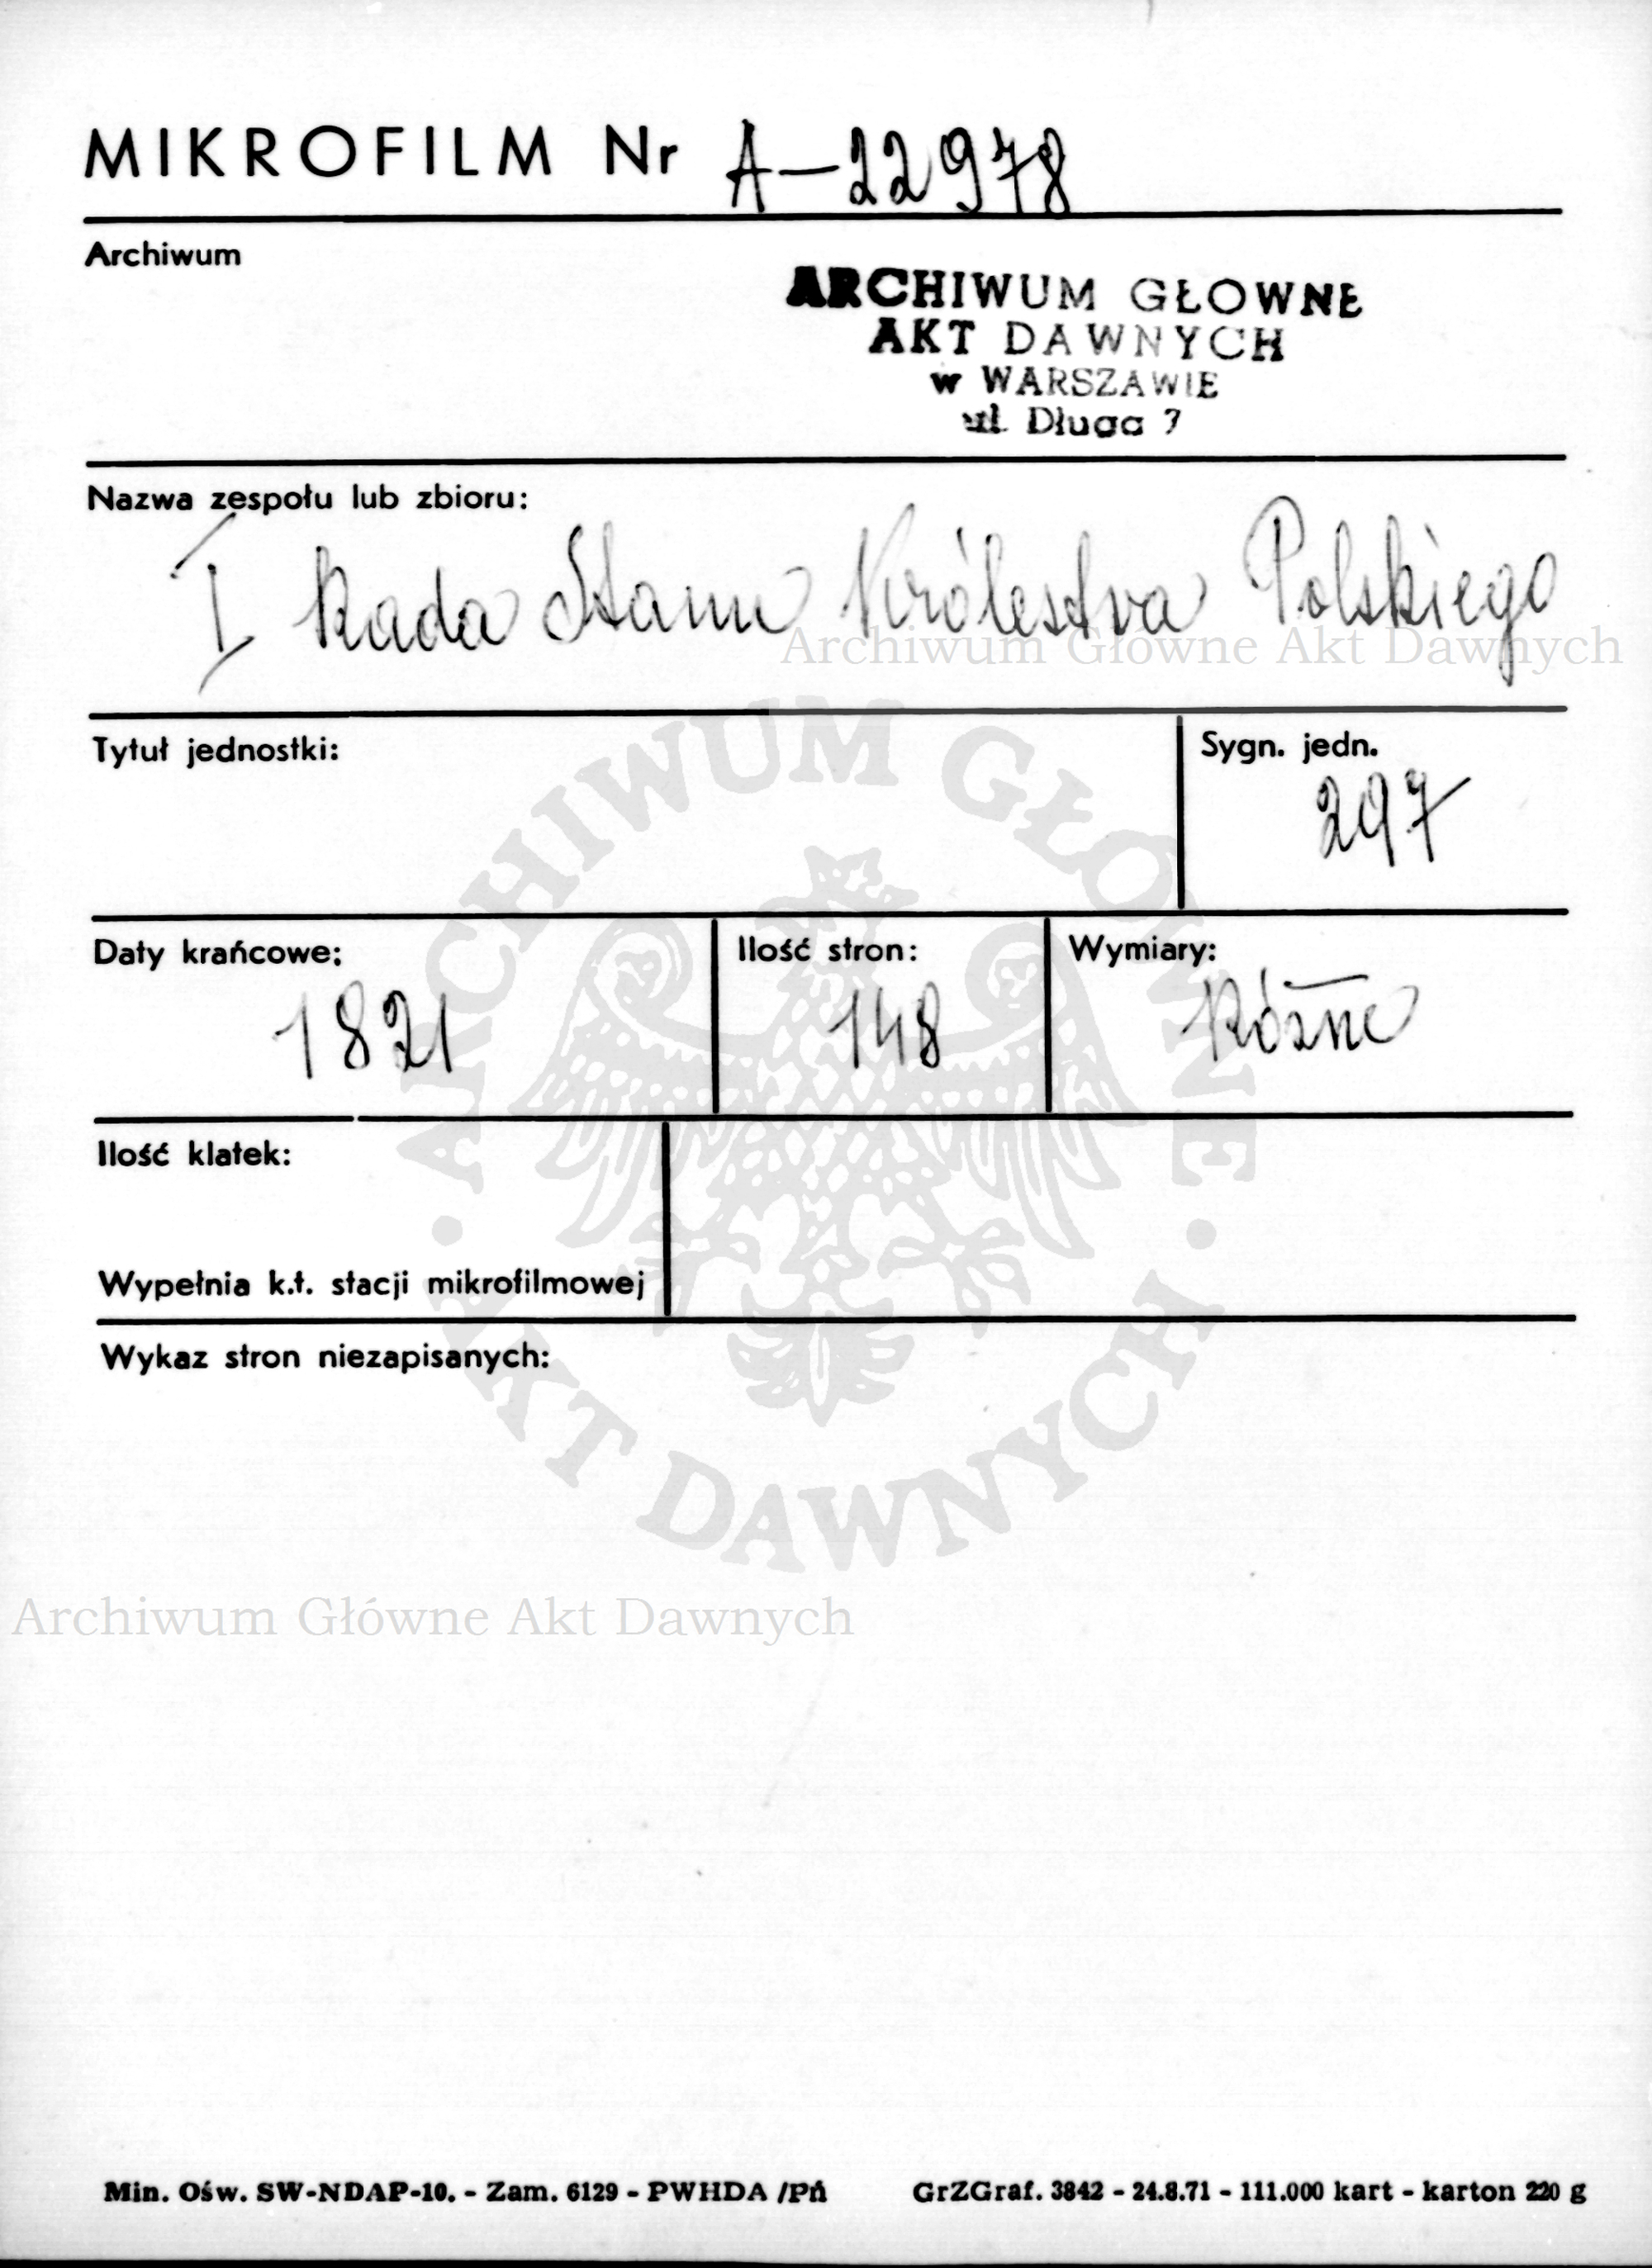 MIKROFILM Nr A-22978
Archiwum
ARCHIWUM GŁOWNE
AKT DAWNYCH
w WARSZAWIE
ul. Długa 7
Nazwa zespołu lub zbioru:
I Rada Stanu Królestwa Polskiego
Archiwum Główne Akt Dawnych
Tytuł jednostki:
Sygn. jedn.
297
Daty krańcowe:
1821
Ilość stron:
148
Wymiary:
Różne
Ilość klatek:
Wypełnia k.t. stacji mikrofilmowej
Wykaz stron niezapisanych:
ARCHIWUM GŁÓWNE
AKT DAWNYCH
Archiwum Główne Akt Dawnych
Min. Ośw. SW-NDAP-10. - Zam. 6129 - PWHDA /Pń GrZGraf. 3842 - 24.8.71 - 111.000 kart - karton 220 g